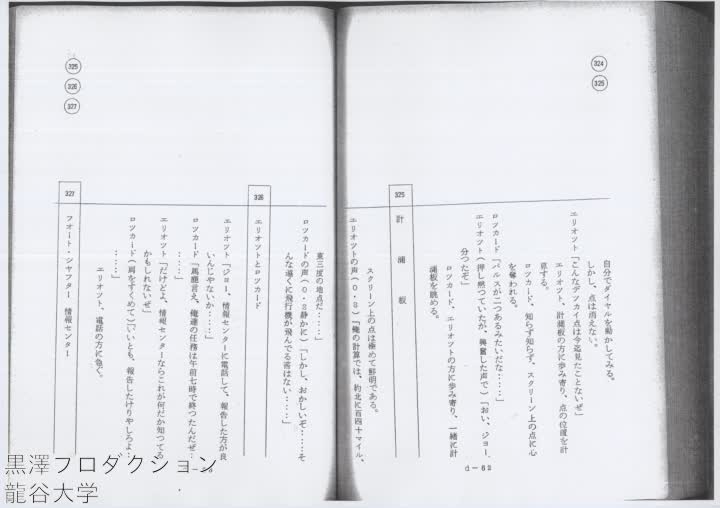 324
325
自分でダイヤルを動かしてみる。
しかし、点は消えない。
エリオット「こんなデッカイ点は今迄見たことないぜ」
エリオット、計濶板の方に歩み寄り、点の位置を計
算する。
ロッカード、知らず知らず、スクリーン上の点に心
を奪われる。
ロッカード「パルスが二つあるみたいだな……」
エリオット(押し黙っていたが、興奮した声で)「おい、ジョー、
分ったぞ」
ロッカード、エリオットの方に歩み寄り、一緒に計
濶板を眺める。
325
計濶板
スクリーン上の点は極めて鮮明である。
エリオットの声(O・S)「俺の計算では、約北に百四十マイル、
d-62
325
326
327
東三度の地点だ……」
ロッカードの声(O・S静かに)「しかし、おかしいぞ……そ
んな遠くに飛行機が飛んでる筈はない……」
326
エリオットとロッカード
エリオット「ジョー、情報センターに電話して、報告した方が良
いんじゃないか……」
ロッカード「馬鹿言え、俺達の任務は午前七時で終ったんだぜ…
……」
エリオット「だけどよ、情報センターならこれが何だか知ってる
かもしれないぜ」
ロッカード(肩をすくめて)「いいとも、報告したけりゃしろよ…
……」
エリオット、電話の方に急ぐ。
327
フォート・シャフター 情報センター
黒澤プロダクション
龍谷大学